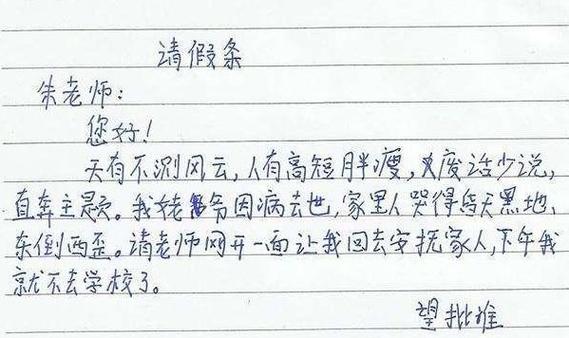 请假条
朱老师:
您好!
天有不测风云,人有高短胖瘦,废话少说,
直奔主题。我姥爷因病去世,家里人哭得昏天黑地、
东倒西歪。请老师网开一面让我回去安抚家人,下午我
就不去学校了。
望批准